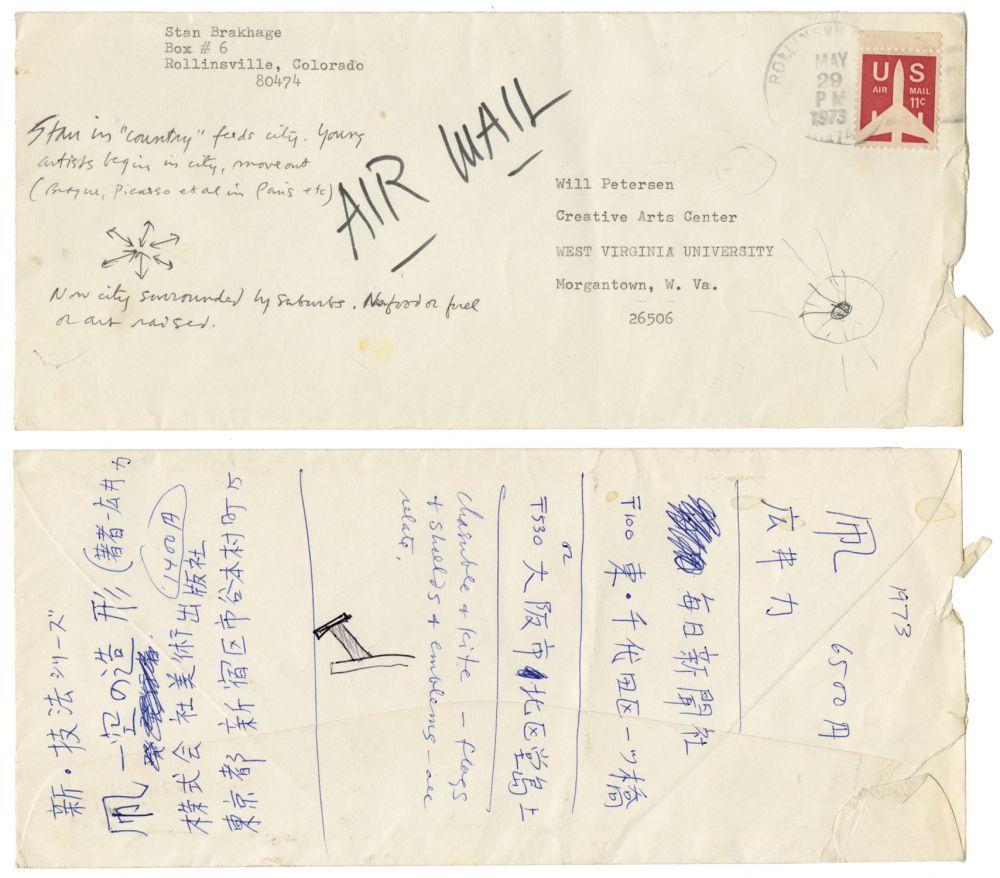 Stan Brakhage
Box # 6
Rollinsville, Colorado
80474
MAY
29
PM
1973
US
AIR MAIL
11¢
AIR MAIL
Stan in "country" feeds city. Young
artists begin in city, move out
(Braque, Picasso et al in Paris etc)
Now city surrounded by suburbs. No food or fuel
or art raised.
Will Petersen
Creative Arts Center
WEST VIRGINIA UNIVERSITY
Morgantown, W. Va.
26506
1973
凧 6500円
広井力
毎日新聞社
〒100 東・千代田区一ツ橋
or
〒530 大阪市北区堂島上
Chasuble & kite – flags
& shields & emblems – all
relate.
新・技法シリーズ
凧―空の造形 (著者―広井力
1400円
株式会社美術出版社
東京都新宿区市谷本村町15